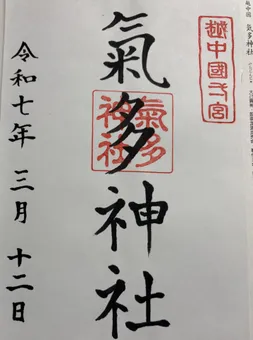 越中國一宮
氣多神社
氣多
神社
令和七年 三月 十二日
越中国 氣多神社